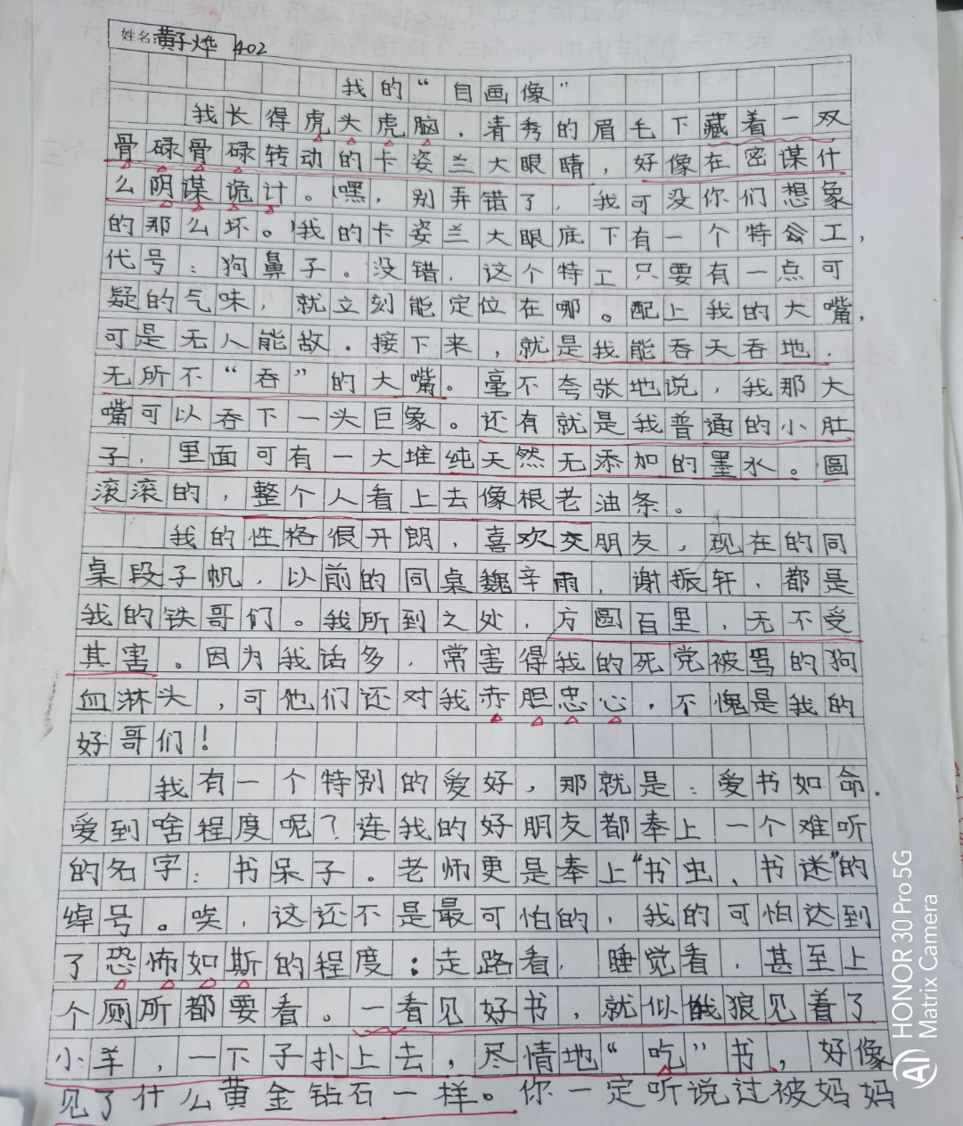 姓名:黄子烨 402
我的“自画像”
我长得虎头虎脑，清秀的眉毛下藏着一双
骨碌骨碌转动的卡姿兰大眼睛，好像在密谋什
么阴谋诡计。嘿，别弄错了，我可没你们想象
的那么坏。我的卡姿兰大眼底下有一个特工，
代号：狗鼻子。没错，这个特工只要有一点可
疑的气味，就立刻能定位在哪。配上我的大嘴，
可是无人能敌。接下来，就是我能吞天吞地，
无所不“吞”的大嘴。毫不夸张地说，我那大
嘴可以吞下一头巨象。还有就是我普通的小肚
子，里面可有一大堆纯天然无添加的墨水。圆
滚滚的，整个人看上去像根老油条。
我的性格很开朗，喜欢交朋友，现在的同
桌段子帆，以前的同桌魏辛雨，谢振轩，都是
我的铁哥们。我所到之处，方圆百里，无不受
其害。因为我话多，常害得我的死党被骂的狗
血淋头，可他们还对我赤胆忠心，不愧是我的
好哥们！
我有一个特别的爱好，那就是：爱书如命．
爱到啥程度呢？连我的好朋友都奉上一个难听
的名字：书呆子。老师更是奉上“书虫、书迷”的
绰号。唉，这还不是最可怕的，我的可怕达到
了恐怖如斯的程度：走路看，睡觉看，甚至上
个厕所都要看。一看见好书，就似饿狼见着了
小羊，一下子扑上去，尽情地“吃”书，好像
见了什么黄金钻石一样。你一定听说过被妈妈
HONOR 30 Pro 5G
Matrix Camera